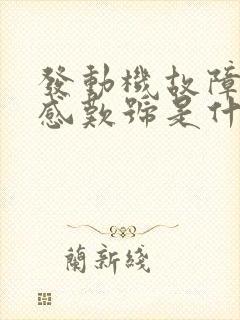 發動機故障
感歎號是什
蘭新綫